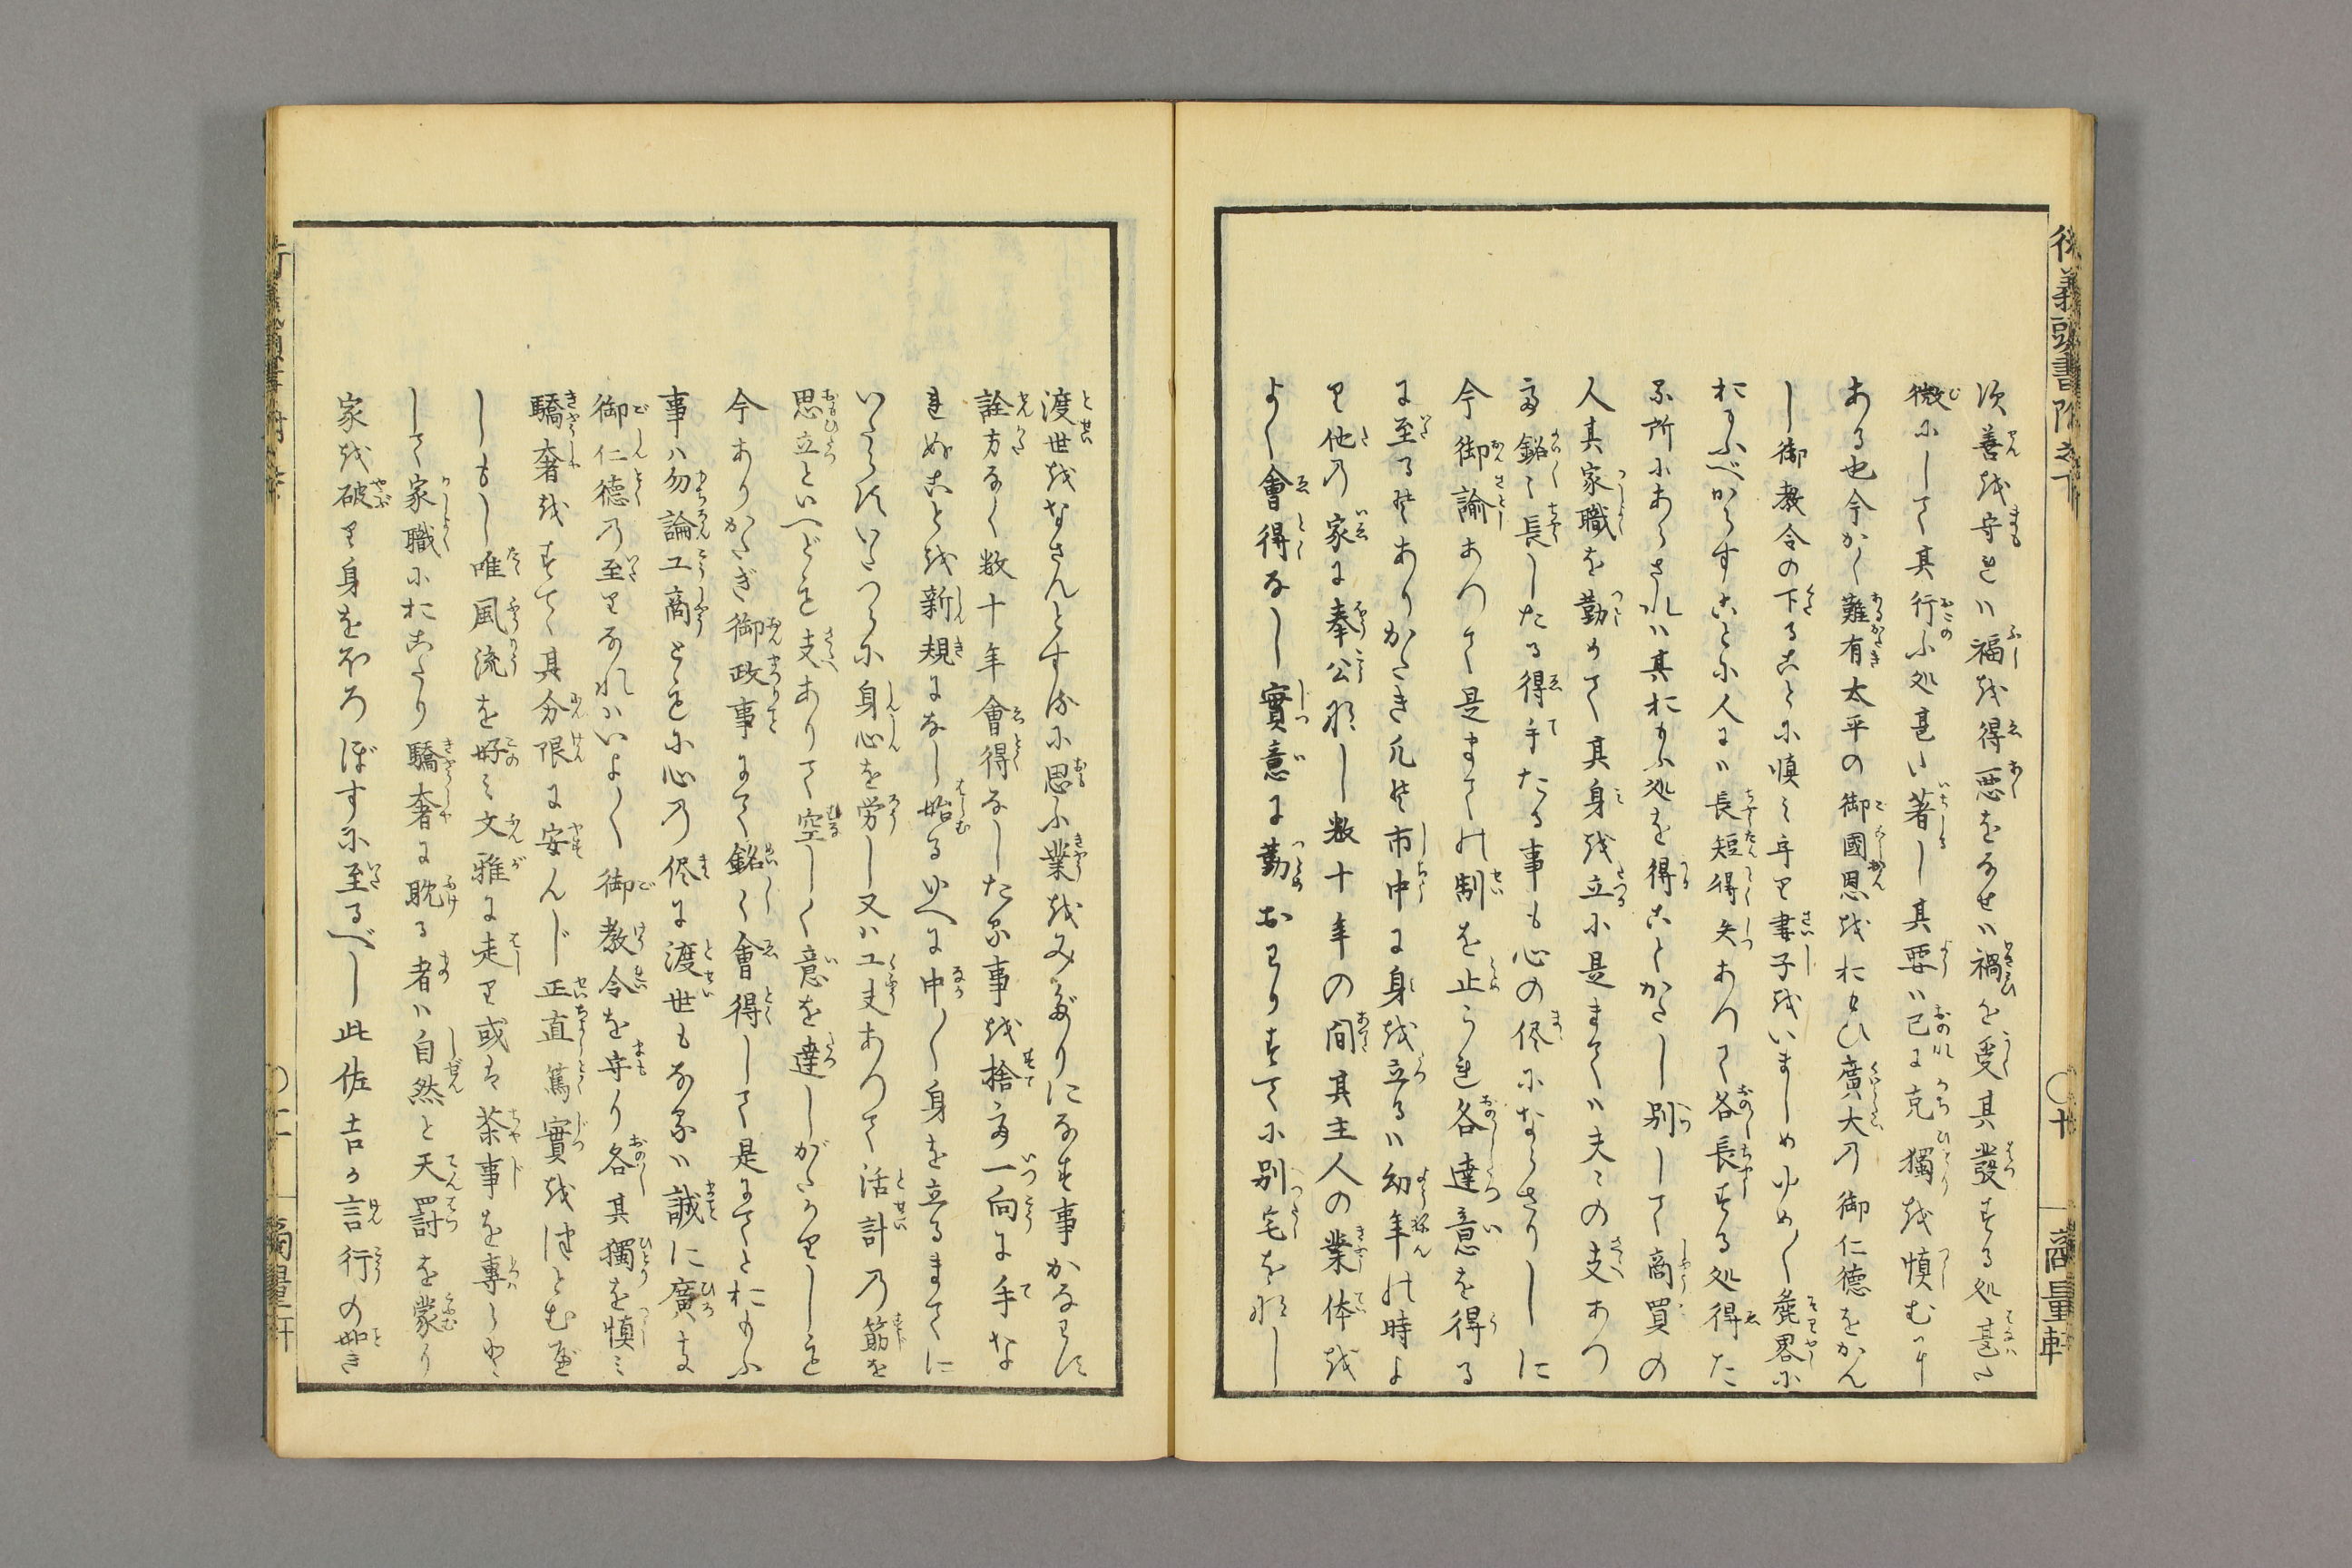 次善を守れハ福を得悪をなせハ禍を受其發する処甚た
微にして其行ふ処甚い著し其要ハ己に克獨を慎むに
ある也今かく難有太平の御國恩をおもひ廣大の御仁徳をかん
し御教令の下ることに慎ミ守り妻子をいましめゆめ〱麁畧に
おもふべからすことに人にハ長短得失あつて各長する処得た
る所にあらされハ其おもふ処を得ことかたし別して商買の
人其家職を勤めて其身を立に是まてハ夫〻の支あつ
て銘〻長したる得手たる事も心の侭にならさりしに
今御諭あつて是まての制を止られ各達意を得る
に至るはありかたき凡は市中に身を立るハ幼年の時よ
り他の家に奉公なし数十年の間其主人の業体を
よく會得なし實意に勤おわりすてに別宅をなし
渡世をなさんとするに思ふ業をみだりになす事かなわす
詮方なく数十年會得なしたる事を捨て一向に手な
れぬことを新規になし始るゆへに中〱身を立るまてに
いたらすいたつらに身心を労し又ハ工夫あつて活計の筋を
思立といへども支ありて空しく意を達しがたかりしを
今ありがたき御政事にて銘〱會得して是まてとおもふ
事ハ勿論工商ともに心の侭に渡世もなるハ誠に廣大
御仁徳の至りなれハいよ〱御教令を守り各其獨を慎ミ
驕奢をすて其分限に安んじ正直篤實をつとむべ
しもし唯風流を好ミ文雅に走り或は茶事を專らに
して家職におこたり驕奢に耽る者ハ自然と天罰を蒙り
家を破り身をほろぼすに至るべし此佐吉か言行の如き
後義頭書附之下
〇十
商量軒